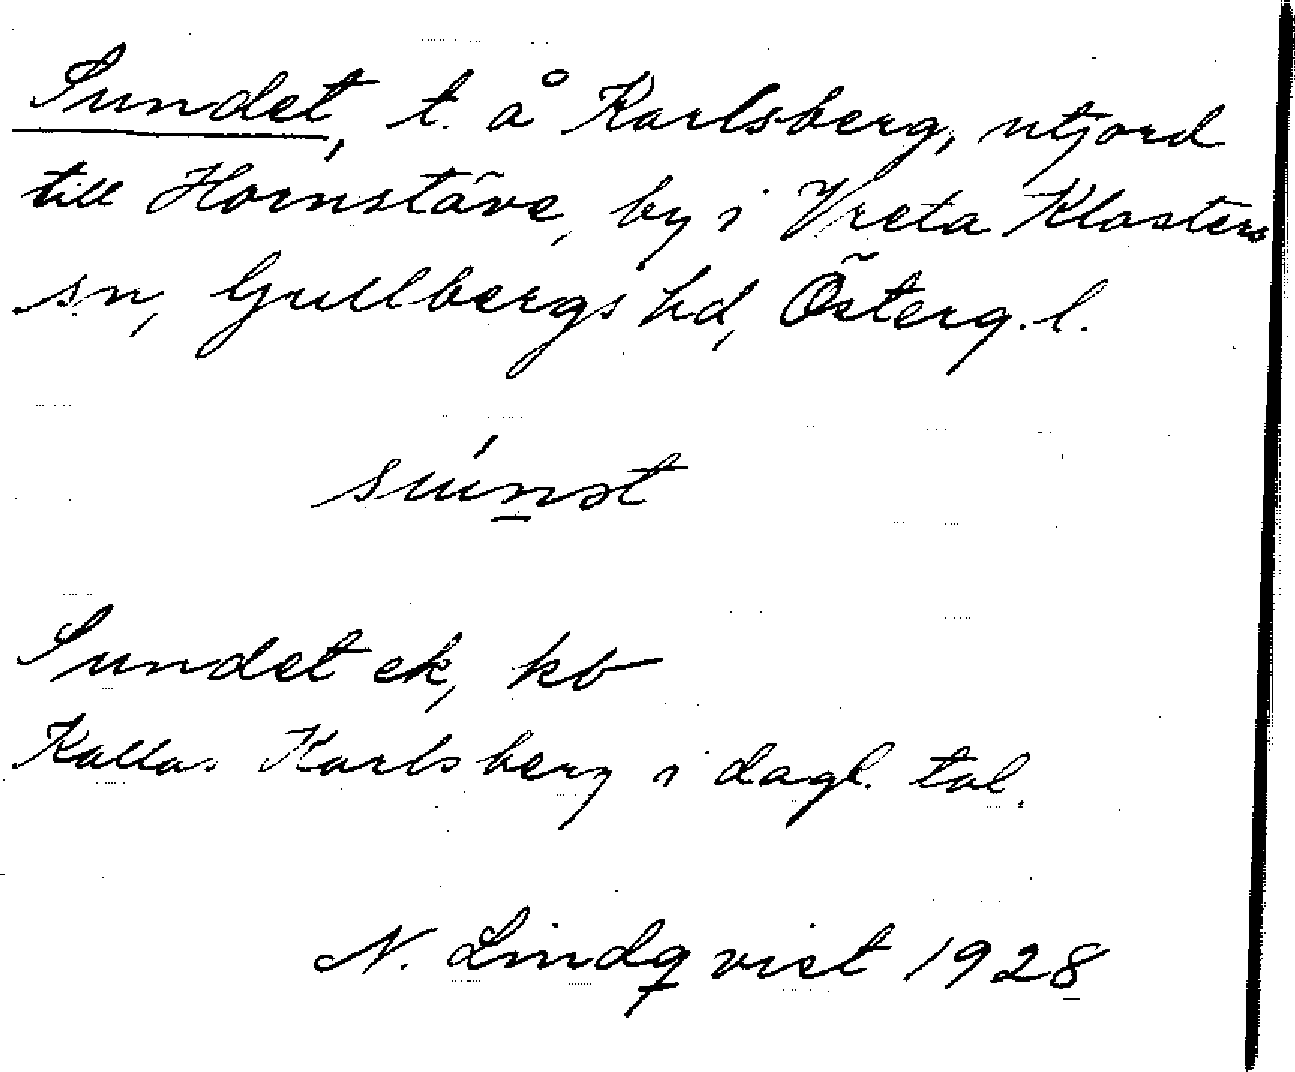 Sundet, t. å Karlsberg, utjord
till Hornstäve, by i Vreta Klosters
sn, Gullbergs hd, Österg. l.
súnst
Sundet ek, kb
Kallas Karlsberg i dagl. tal.
N. Lindqvist 1928